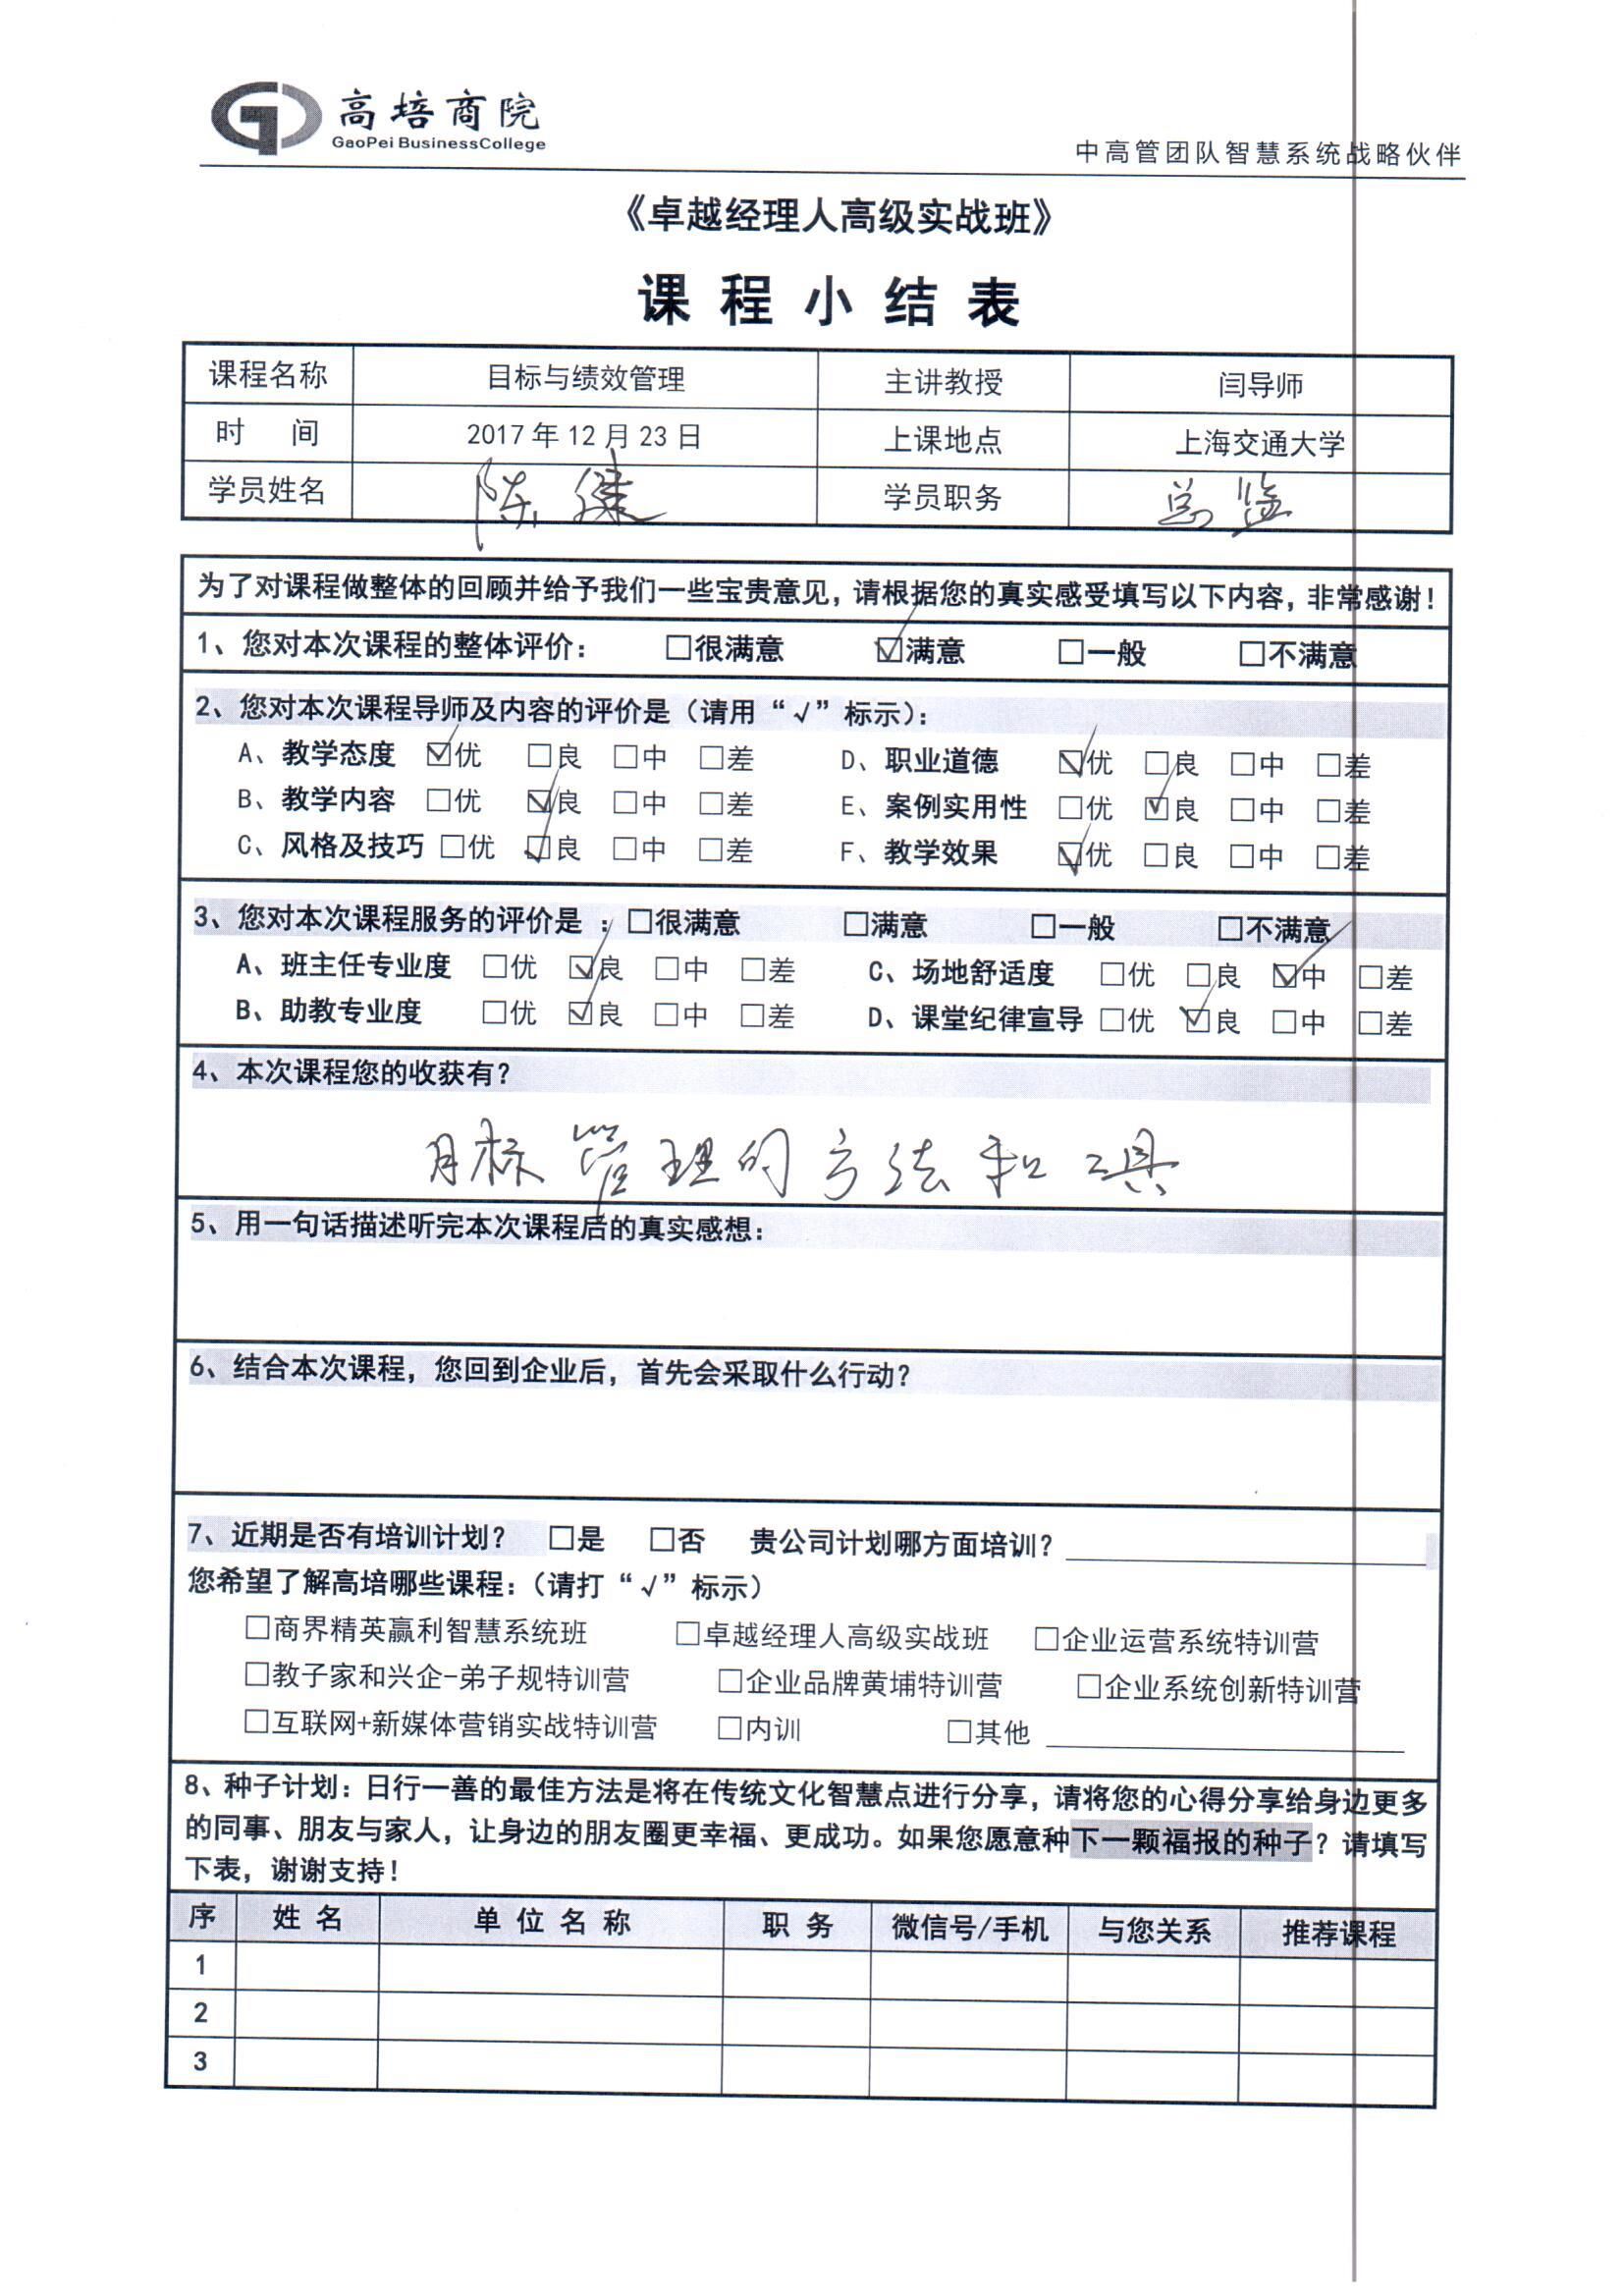 高培商院
GaoPei BusinessCollege
中高管团队智慧系统战略伙伴
《卓越经理人高级实战班》
课程小结表
课程名称 目标与绩效管理 主讲教授 闫导师
时 间 2017年12月23日 上课地点 上海交通大学
学员姓名 陈健 学员职务 总监
为了对课程做整体的回顾并给予我们一些宝贵意见，请根据您的真实感受填写以下内容，非常感谢！
1、您对本次课程的整体评价： □很满意 ☑满意 □一般 □不满意
2、您对本次课程导师及内容的评价是（请用“√”标示）：
A、教学态度 ☑优 □良 □中 □差 D、职业道德 ☑优 □良 □中 □差
B、教学内容 □优 ☑良 □中 □差 E、案例实用性 □优 ☑良 □中 □差
C、风格及技巧 □优 ☑良 □中 □差 F、教学效果 ☑优 □良 □中 □差
3、您对本次课程服务的评价是 ：□很满意 □满意 □一般 □不满意
A、班主任专业度 □优 ☑良 □中 □差 C、场地舒适度 □优 □良 ☑中 □差
B、助教专业度 □优 ☑良 □中 □差 D、课堂纪律宣导 □优 ☑良 □中 □差
4、本次课程您的收获有？
目标管理的方法和工具
5、用一句话描述听完本次课程后的真实感想：
6、结合本次课程，您回到企业后，首先会采取什么行动？
7、近期是否有培训计划？ □是 □否 贵公司计划哪方面培训？
您希望了解高培哪些课程：（请打“√”标示）
□商界精英赢利智慧系统班 □卓越经理人高级实战班 □企业运营系统特训营
□教子家和兴企-弟子规特训营 □企业品牌黄埔特训营 □企业系统创新特训营
□互联网+新媒体营销实战特训营 □内训 □其他
8、种子计划：日行一善的最佳方法是将在传统文化智慧点进行分享，请将您的心得分享给身边更多
的同事、朋友与家人，让身边的朋友圈更幸福、更成功。如果您愿意种下一颗福报的种子？请填写
下表，谢谢支持！
序 姓名 单位名称 职务 微信号/手机 与您关系 推荐课程
1
2
3